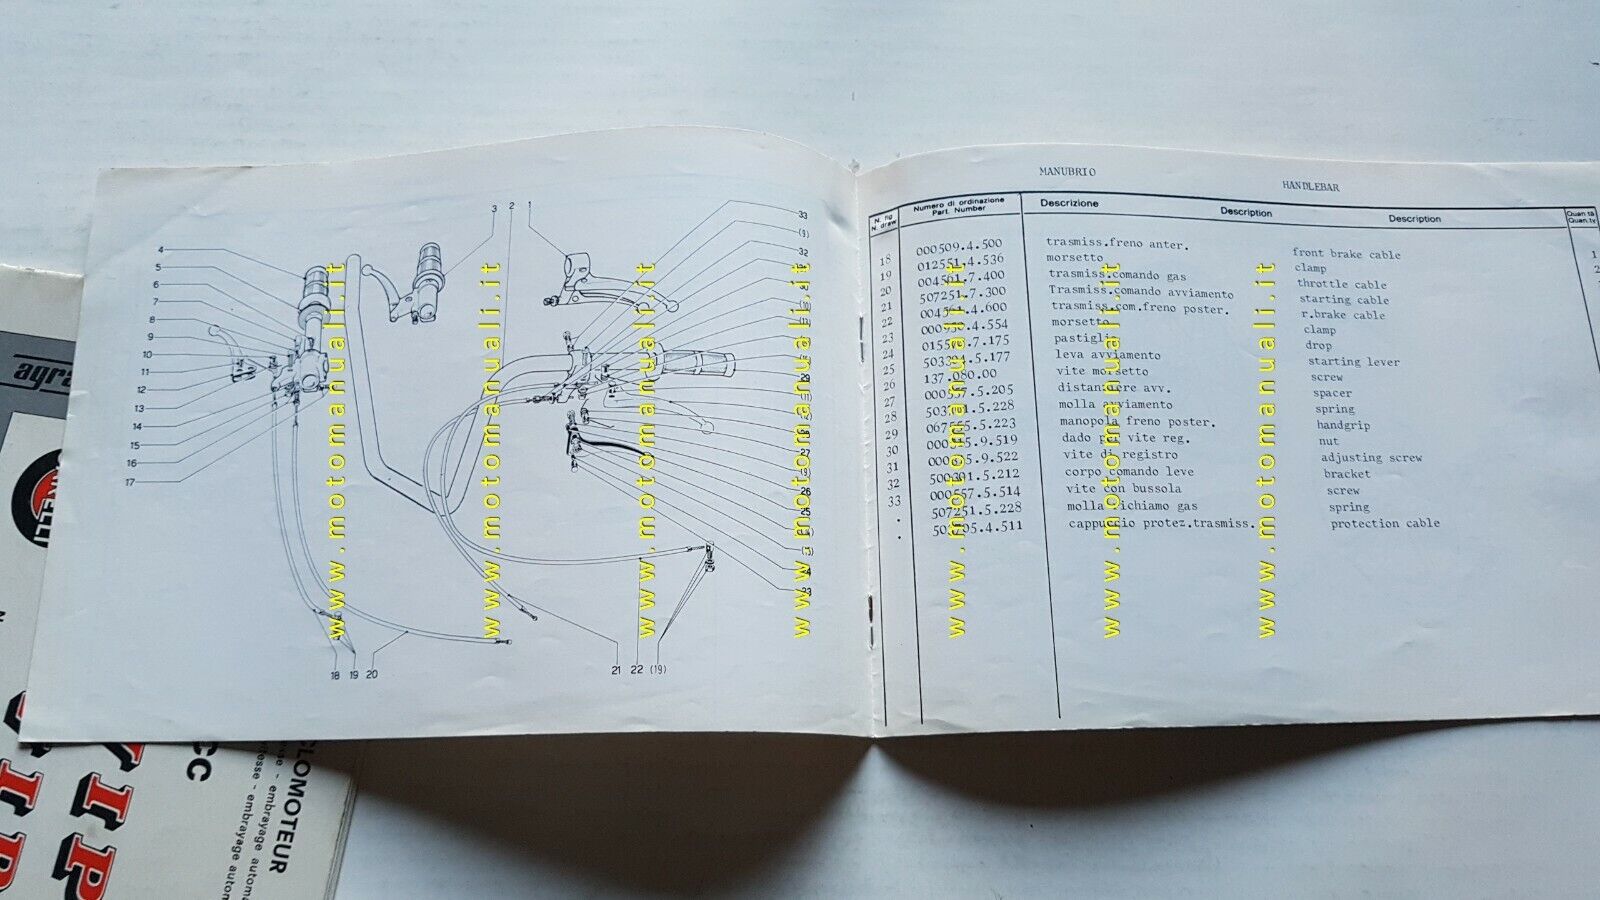 MANUBRIO
HANDLEBAR
N. fig
N. draw
Numero di ordinazione
Part. Number
Descrizione
Description
Description
Quan.tà
Quan.ty
18 000509.4.500 trasmiss.freno anter. front brake cable 1
19 012551.4.536 morsetto clamp 2
20 7.400 trasmiss.comando gas throttle cable
21 507251.7.300 Trasmiss.comando avviamento starting cable
22 4.600 trasmiss.com.freno poster. r.brake cable
23 4.554 morsetto clamp
24 7.175 pastiglia drop
25 5.177 leva avviamento starting lever
26 137.080.00 vite morsetto screw
27 5.205 distanziere avv. spacer
28 5.228 molla avviamento spring
29 5.223 manopola freno poster. handgrip
30 9.519 dado per vite reg. nut
31 9.522 vite di registro adjusting screw
32 5.212 corpo comando leve bracket
33 000557.5.514 vite con bussola screw
. 507251.5.228 molla richiamo gas spring
. 4.511 cappuccio protez.trasmiss. protection cable
1
2
3
4
5
6
7
8
9
10
11
12
13
14
15
16
17
33
(9)
32
27
26
25
18 19 20
21 22 (19)
www.motomanuali.it
www.motomanuali.it
www.motomanuali.it
www.motomanuali.it
www.motomanuali.it
www.motomanuali.it
www.motomanuali.it
agra
VIP
CC
CLOMOTEUR
embrayage autom
embrayage autom